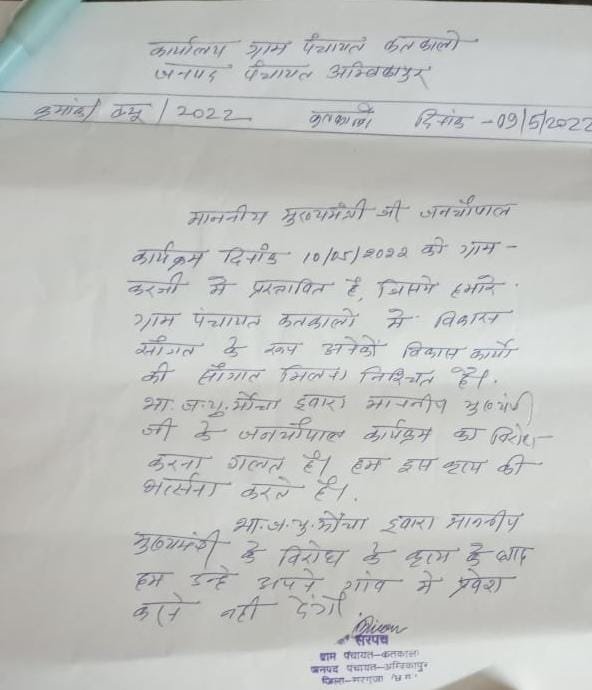 कार्यालय ग्राम पंचायत कतकालो
जनपद पंचायत अम्बिकापुर
क्रमांक/ क्यू / 2022 कतकालो दिनांक - 09/5/2022
माननीय मुख्यमंत्री जी जनचौपाल
कार्यक्रम दिनांक 10/05/2022 को ग्राम -
करजी में प्रस्तावित है, जिसमे हमारे
ग्राम पंचायत कतकालो में विकास
सौगात के रूप अनेकों विकास कार्यो
की सौगात मिलना निश्चित है।
भा.ज.यु.मोंर्चा द्वारा माननीय मुख्यमंत्री
जी के जनचौपाल कार्यक्रम का विरोध
करना गलत है। हम इस कृत्य की
भर्त्सना करते है।
भा.ज.यु.मोंर्चा द्वारा माननीय
मुख्यमंत्री के विरोध के कृत्य के बाद
हम उन्हे अपने गांव मे प्रवेश
करने नही देंगे।
सरपंच
ग्राम पंचायत-कतकालो
जनपद पंचायत-अम्बिकापुर
जिला-सरगुजा (छ.ग.)